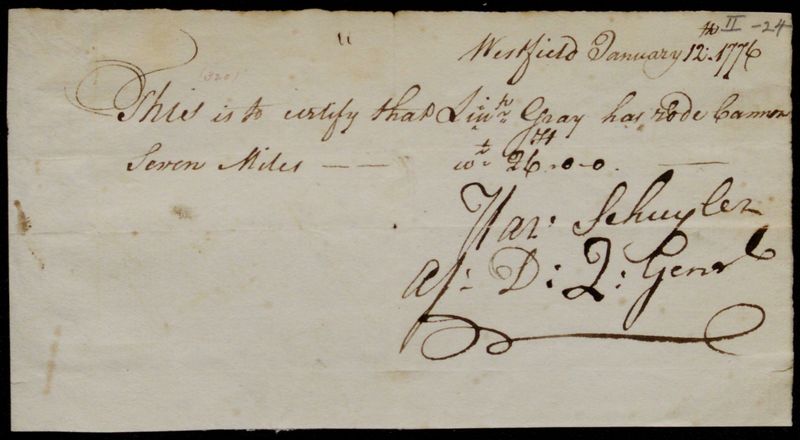 II -24
Westfield January 12th 1776
(320)
This is to certify that Liut Gray has rode Cannon
Seven Miles — — wt 26-0-0. —
Har: Schuyler
As: D: Q: Genrl